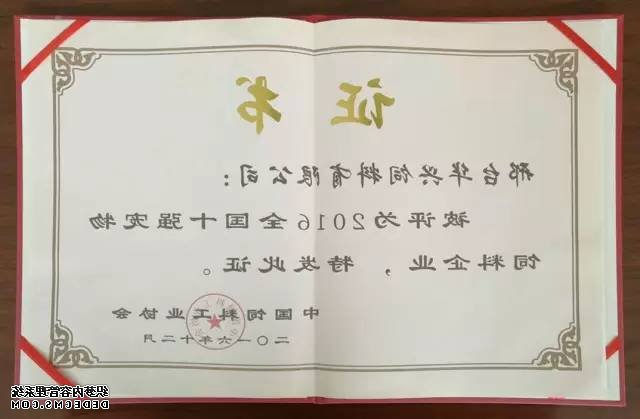 证书
邢台华兴饲料有限公司：
被评为2016全国十强宠物
饲料企业，特发此证。
中国饲料工业协会
二〇一六年十二月
织梦内容管理系统
DEDECMS.COM